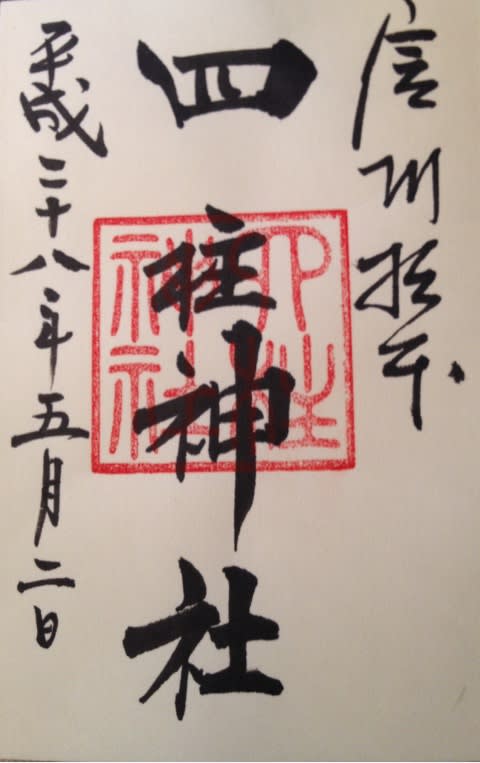 信州松本
四柱神社
四柱神社
平成二十八年五月二日